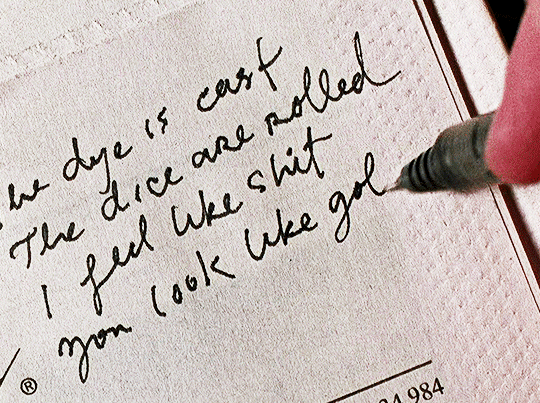 he dye is cast
The dice are rolled
I feel like shit
you look like gol
®
984